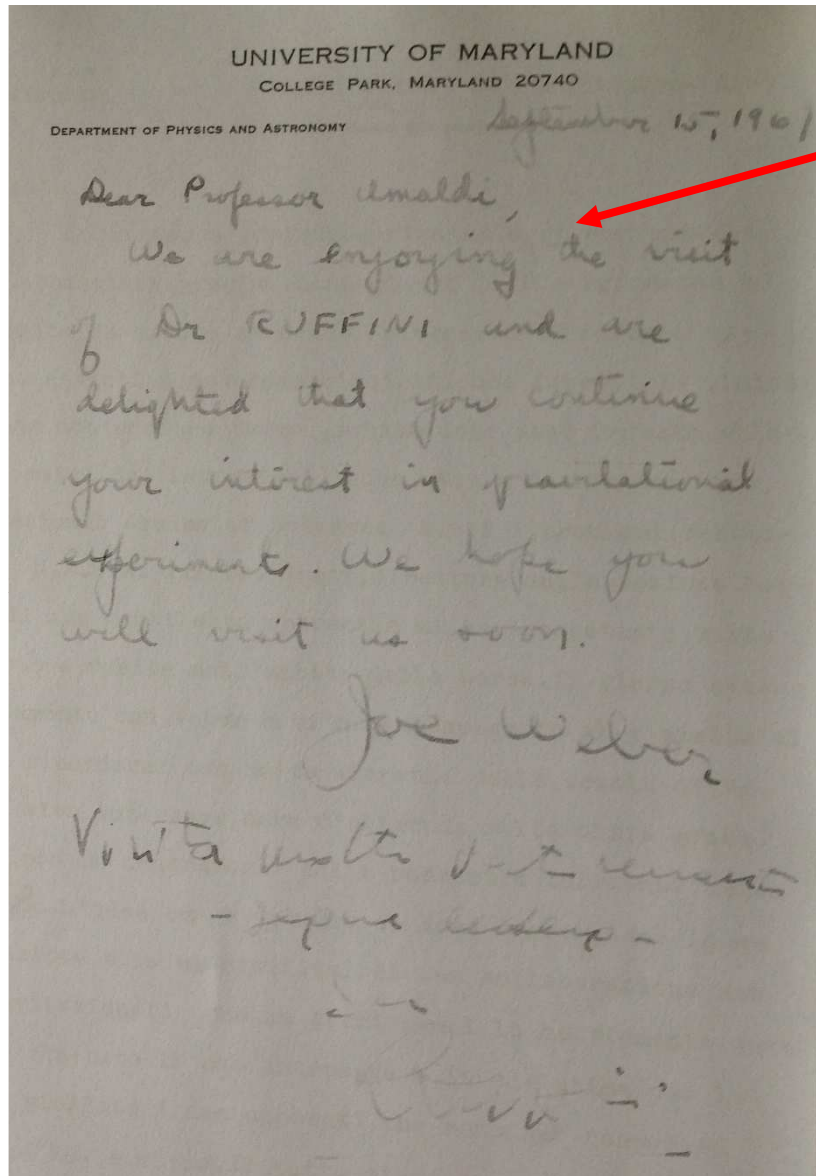 UNIVERSITY OF MARYLAND
COLLEGE PARK, MARYLAND 20740
DEPARTMENT OF PHYSICS AND ASTRONOMY
September 15, 196
Dear Professor Amaldi,
We are enjoying the visit
of Dr RUFFINI and are
delighted that you continue
your interest in gravitational
experiments. We hope you
will visit us soon.
Joe Weber
Visita molto
- segue lettera -